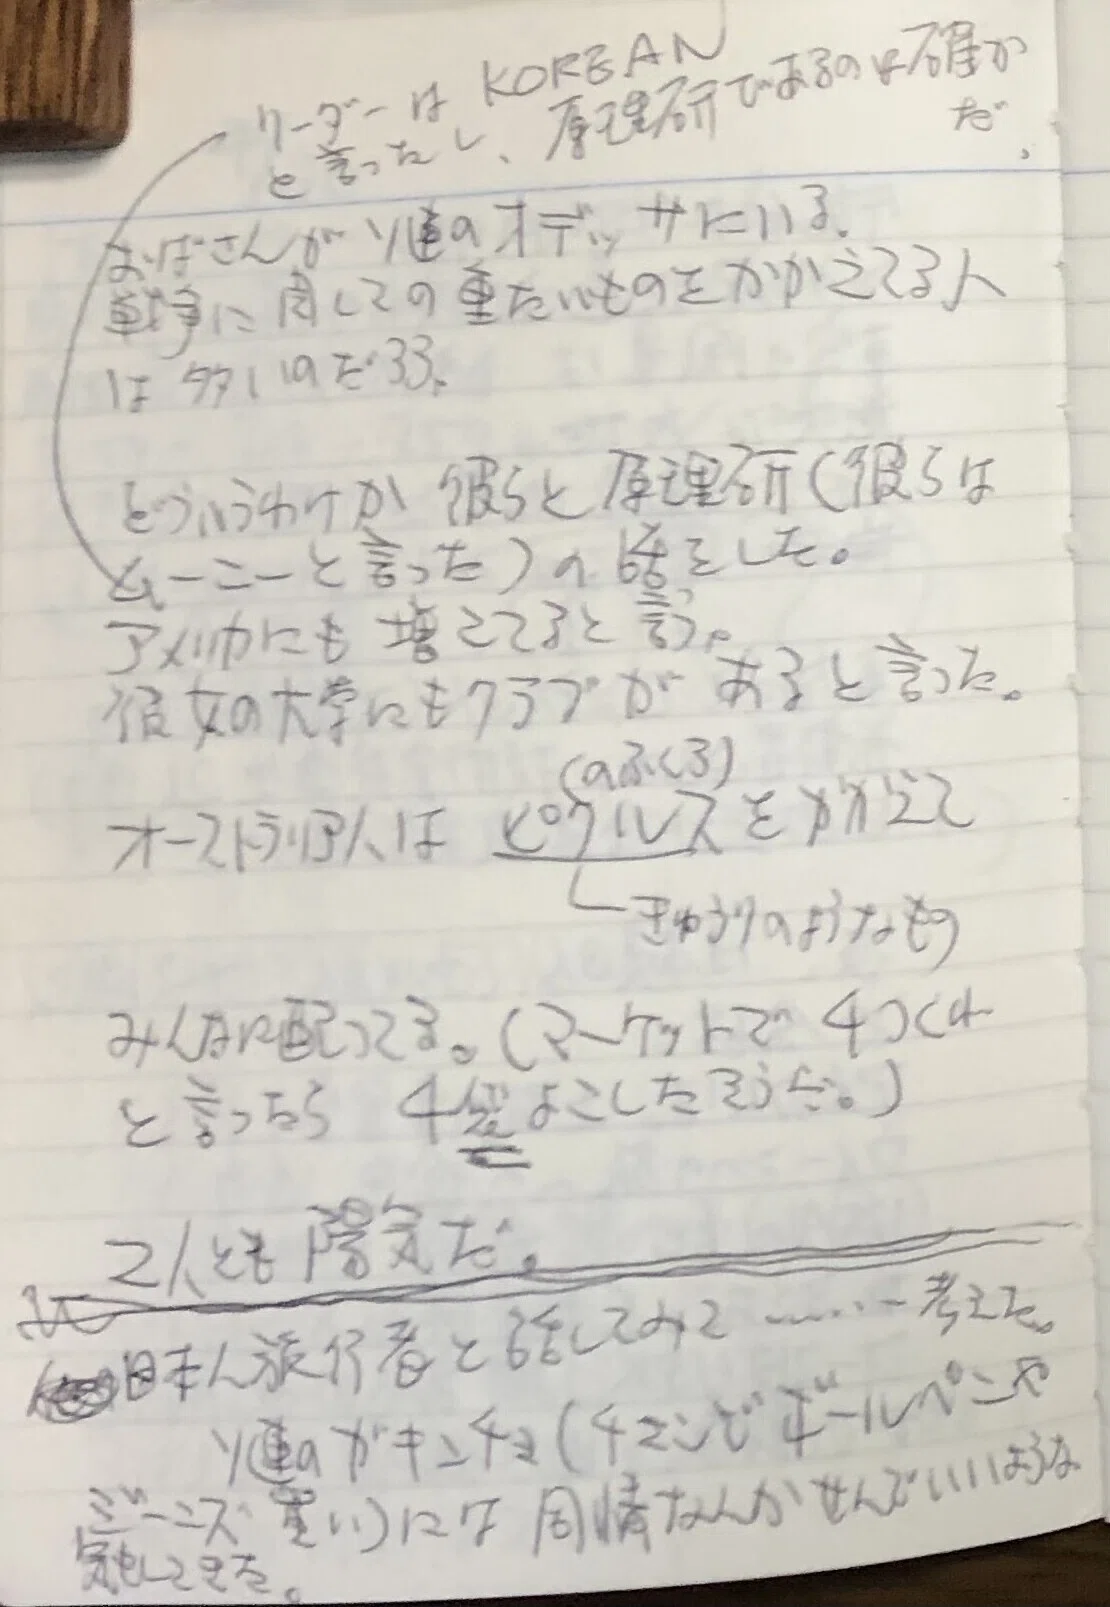 リーダーは KOREAN
と言ったし、原理研であるのは確か
だ。
おばさんがソ連のオデッサにいる。
戦争に関しての重たいものをかかえてる人
は多いのだろう。
どういうわけか 彼らと原理研(彼らは
ムーニーと言った)の話をした。
アメリカにも増えてると言う。
彼女の大学にもクラブがあると言った。
(のふくろ)
オーストラリア人は ピクルスをかかえて
きゅうりのようなもの
みんなに配ってる。(マーケットで4つくれ
と言ったら 4袋よこしたそうだ。)
2人とも陽気だ。
日本人旅行者と話してみて ……考えた。
ソ連のガキンチョ(チェンジ ボールペンや
ジーンズ買い)には 同情なんかせんでいいような
気もしてきた。